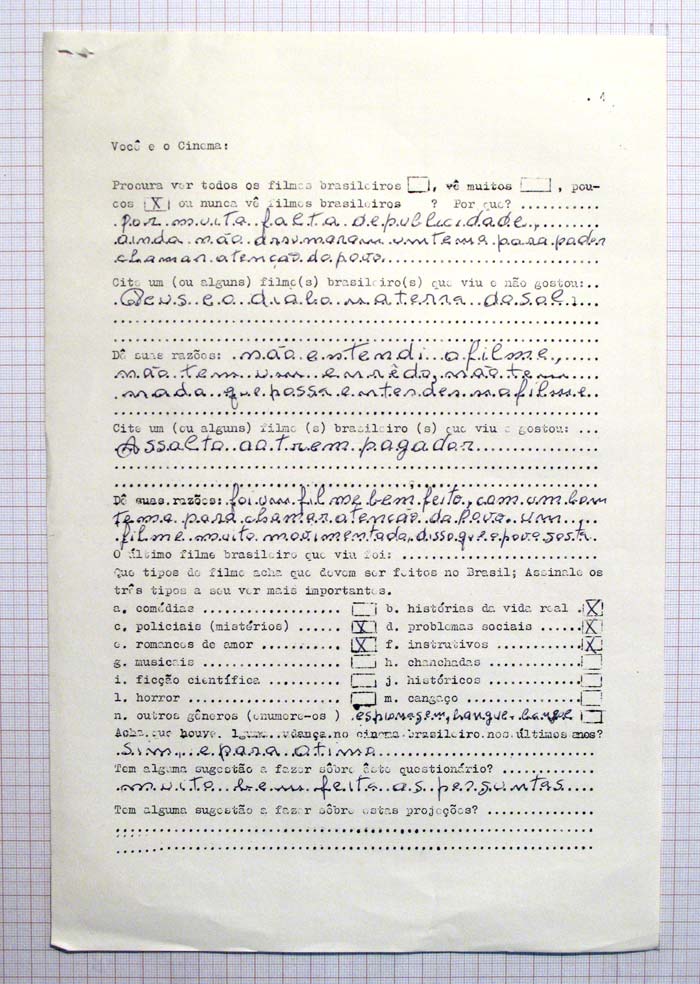 . 4
Você e o Cinema:
Procura ver todos os filmes brasileiros , vê muitos , pou-
cos X ou nunca vê filmes brasileiros ? Por que? ...........
por muita falta de publicidade,
ainda não arrumaram um tema para poder
chamar atenção do povo.
Cite um (ou alguns) filme(s) brasileiro(s) que viu e não gostou:..
Deus e o diabo na terra do sol:
Dê suas razões: não entendi o filme,
não tem um enrêdo, não tem
nada que possa entender no filme
Cite um (ou alguns) filme (s) brasileiro (s) que viu e gostou: ...
Assalto ao trem pagador
Dê suas razões: foi um filme bem feito, com um bom
tema para chamar atenção do povo. um
filme muito movimentado, disso que o povo gosta.
O último filme brasileiro que viu foi: ........................
Que tipos de filme acha que devem ser feitos no Brasil; Assinale os
três tipos a seu ver mais importantes.
a. comédias .................... b. histórias da vida real . X
c. policiais (mistérios) ...... X d. problemas sociais ...... X
e. romances de amor ........... X f. instrutivos ............ X
g. musicais .................... h. chanchadas ..............
i. ficção científica ........... j. históricos ..............
l. horror ...................... m. cangaço .................
n. outros gêneros (enumere-os ) espionagem, bangue-bangue
Acha que houve lguma udança no cinema brasileiro nos últimos anos?
Sim, e para otimo
Tem alguma sugestão a fazer sôbre êste questionário? .............
muito bem feita as perguntas
Tem alguma sugestão a fazer sôbre estas projeções? ...............